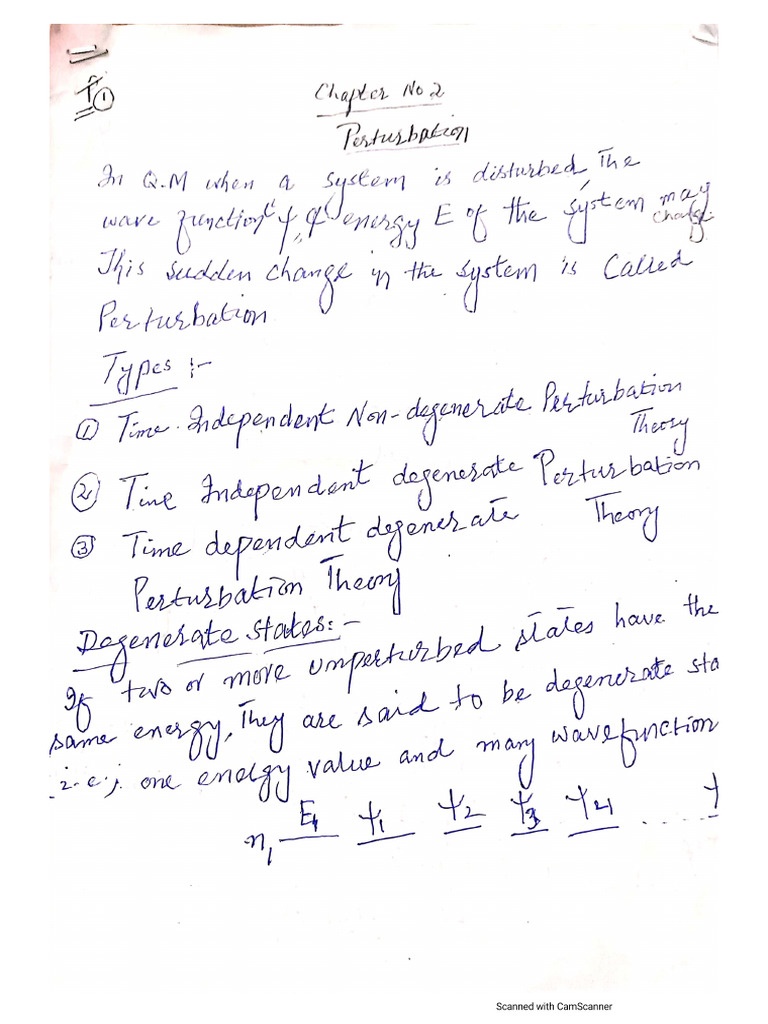 P ①
Chapter No 2
Perturbation
In Q.M when a system is disturbed, The
wave function ψ, & energy E of the system may change.
This sudden change in the system is Called
Perturbation
Types :-
① Time Independent Non-degenerate Perturbation
Theory
② Time Independent degenerate Perturbation
Theory
③ Time dependent degenerate
Perturbation Theory
Degenerate states:-
If two or more unperturbed states have the
same energy, They are said to be degenerate sta
i.e; one energy value and many wavefunction
n₁ E₁ ψ₁ ψ₂ ψ₃ ψ₄ .....
Scanned with CamScanner